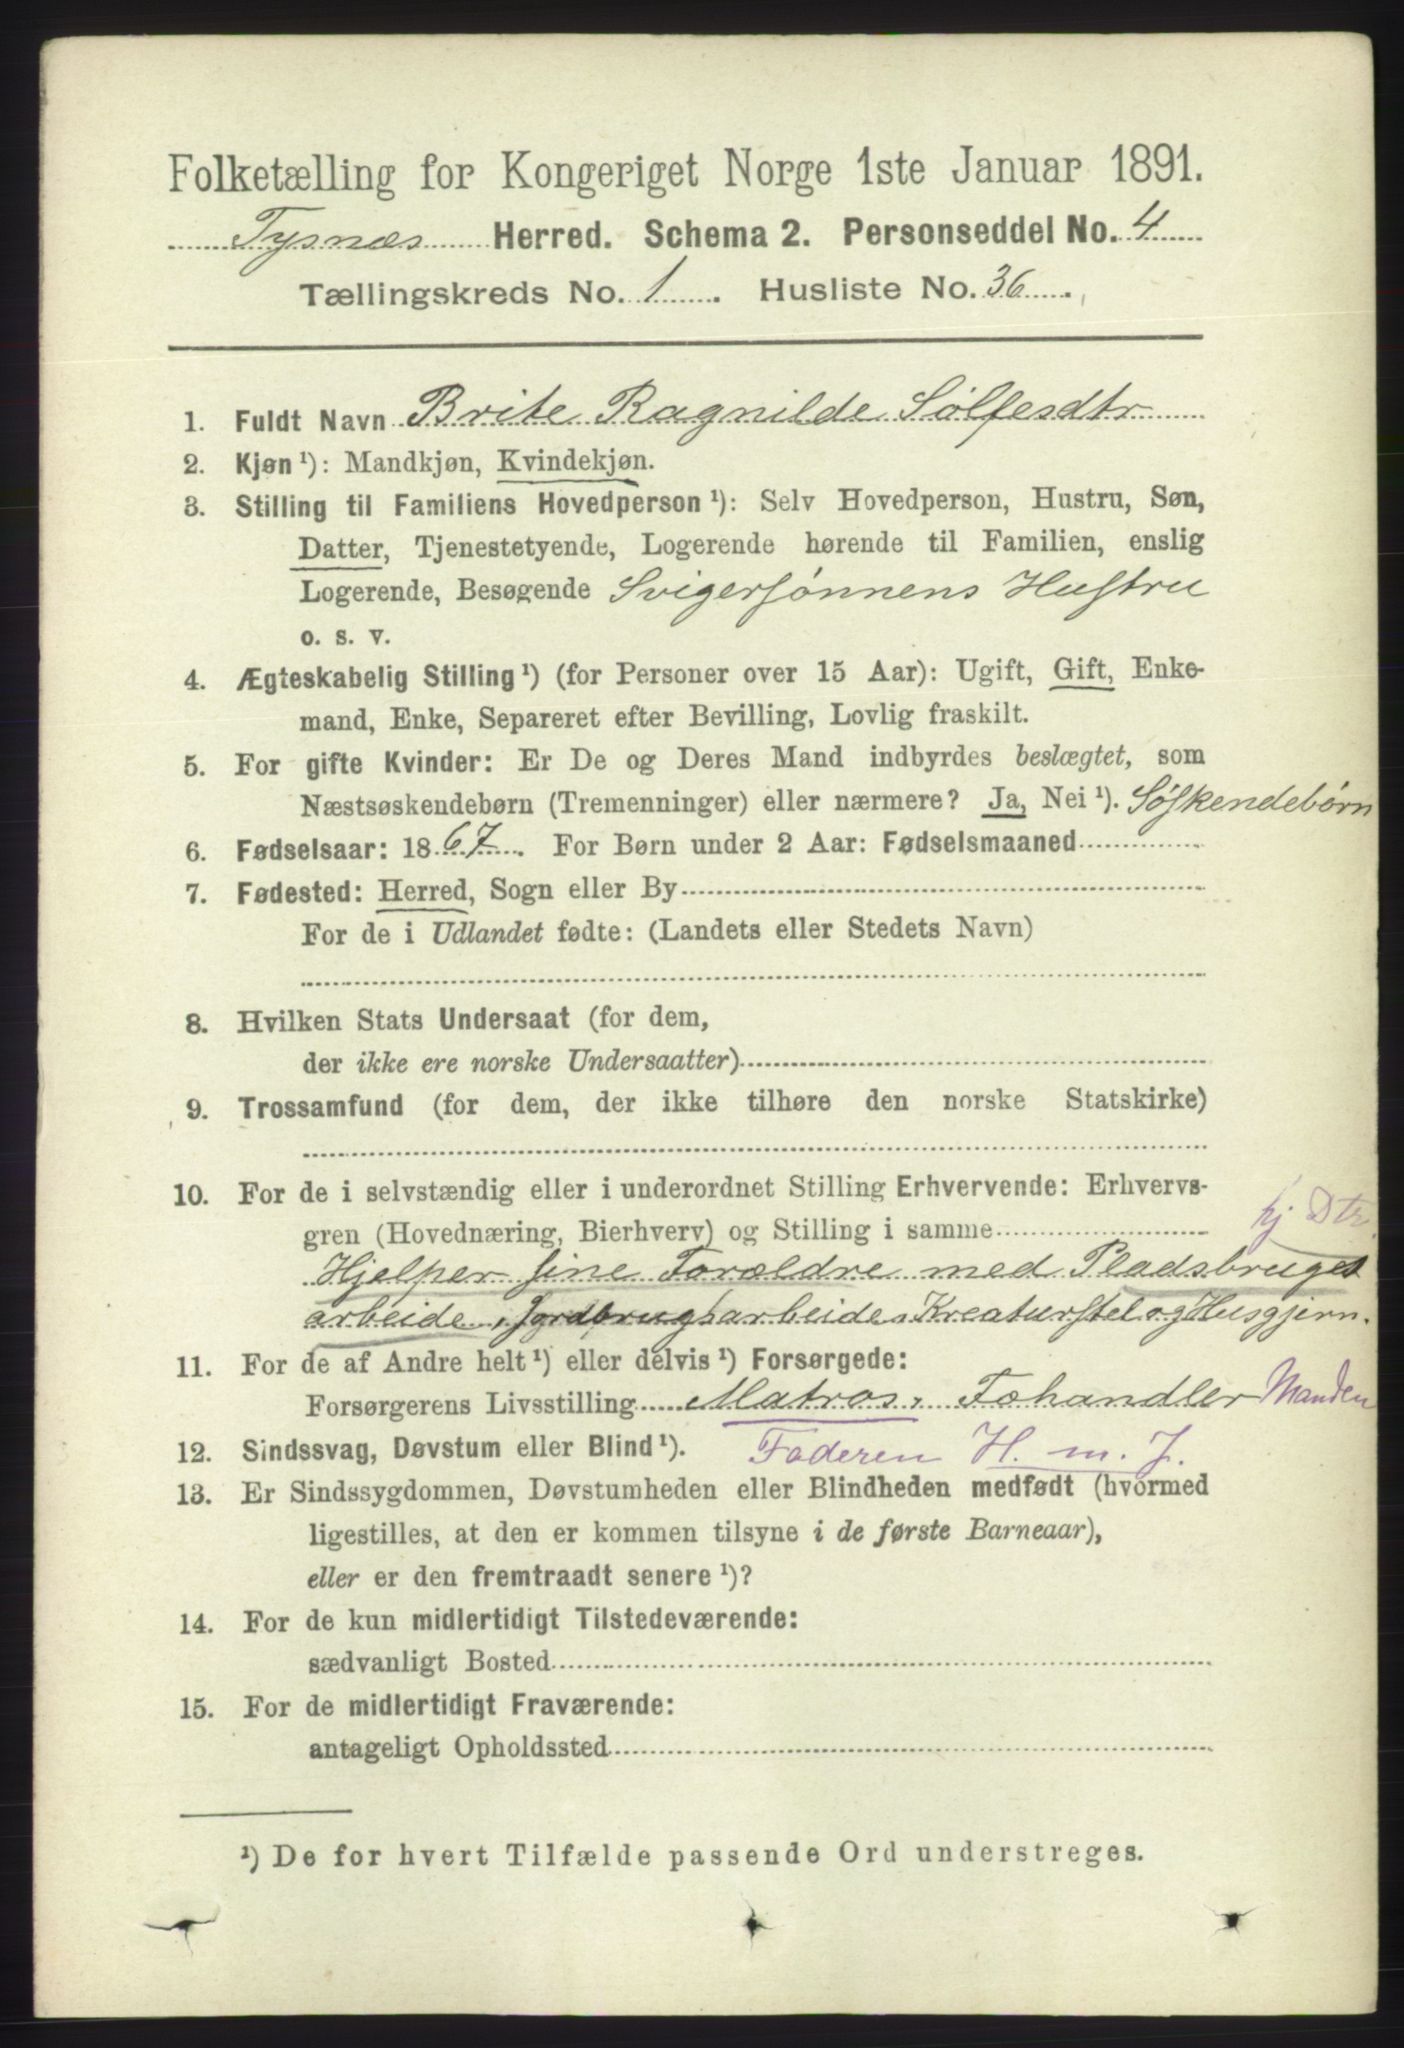 Folketælling for Kongeriget Norge 1ste Januar 1891.
Tysnæs Herred. Schema 2. Personseddel No. 4
Tællingskreds No. 1. Husliste No. 36.
1. Fuldt Navn Brite Ragnilde Sølfesdtr
2. Kjøn ¹): Mandkjøn, Kvindekjøn.
3. Stilling til Familiens Hovedperson ¹): Selv Hovedperson, Hustru, Søn,
Datter, Tjenestetyende, Logerende hørende til Familien, enslig
Logerende, Besøgende Svigersønnens Hustru
o. s. v.
4. Ægteskabelig Stilling ¹) (for Personer over 15 Aar): Ugift, Gift, Enke-
mand, Enke, Separeret efter Bevilling, Lovlig fraskilt.
5. For gifte Kvinder: Er De og Deres Mand indbyrdes beslægtet, som
Næstsøskendebørn (Tremenninger) eller nærmere? Ja, Nei ¹). Søskendebørn
6. Fødselsaar: 1867. For Børn under 2 Aar: Fødselsmaaned
7. Fødested: Herred, Sogn eller By
For de i Udlandet fødte: (Landets eller Stedets Navn)
8. Hvilken Stats Undersaat (for dem,
der ikke ere norske Undersaatter)
9. Trossamfund (for dem, der ikke tilhøre den norske Statskirke)
10. For de i selvstændig eller i underordnet Stilling Erhvervende: Erhvervs-
hj Dtr.
gren (Hovednæring, Bierhverv) og Stilling i samme
Hjelper sine Forældre med Pladsbruget
arbeide, Jordbrugsarbeide, Kreaturstel og Husgjern.
11. For de af Andre helt ¹) eller delvis ¹) Forsørgede:
Forsørgerens Livsstilling Matros, Føhandler Manden
12. Sindssvag, Døvstum eller Blind ¹). Faderen H. m. J.
13. Er Sindssygdommen, Døvstumheden eller Blindheden medfødt (hvormed
ligestilles, at den er kommen tilsyne i de første Barneaar),
eller er den fremtraadt senere ¹)?
14. For de kun midlertidigt Tilstedeværende:
sædvanligt Bosted
15. For de midlertidigt Fraværende:
antageligt Opholdssted
¹) De for hvert Tilfælde passende Ord understreges.